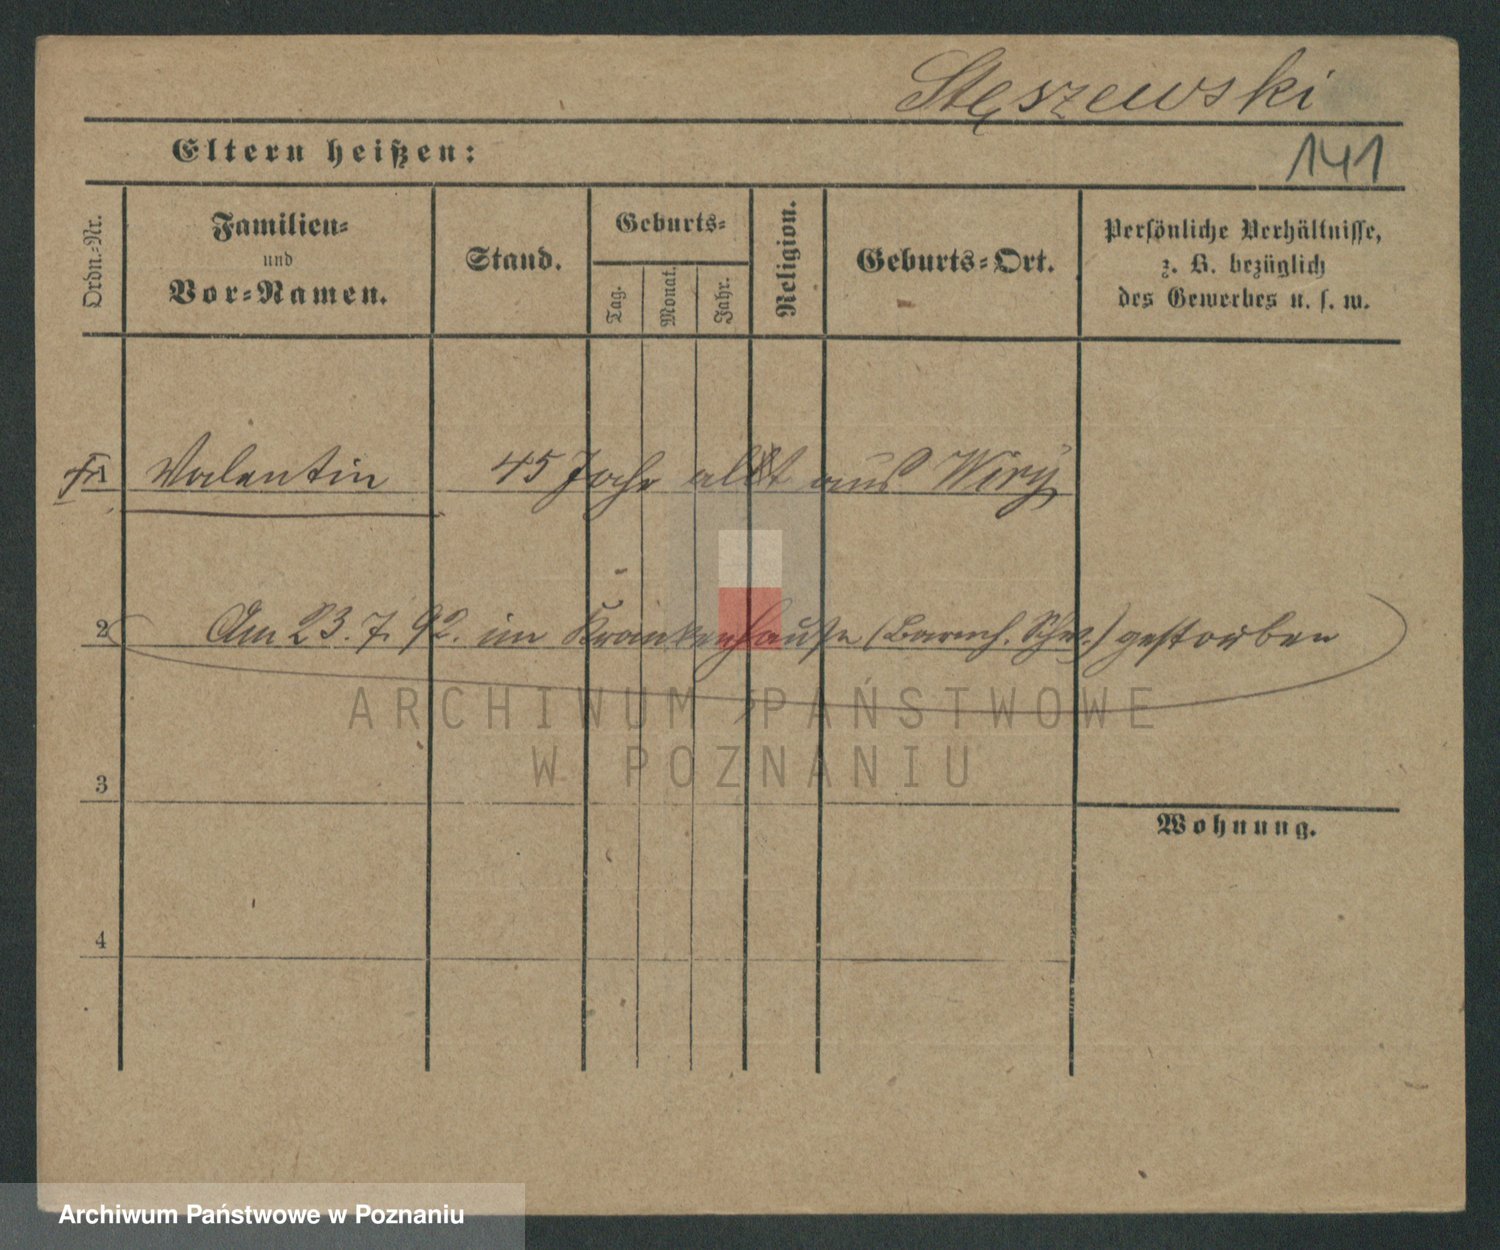 Stęszewski
Eltern heißen:
141
Ordn.-Nr.
Familien-
und
Vor-Namen.
Stand.
Geburts-
Tag.
Monat.
Jahr.
Religion.
Geburts-Ort.
Persönliche Verhältnisse,
z. B. bezüglich
des Gewerbes u. s. w.
1 Valentin 45 Jahr alt aus Wiry
2 Am 23. 7. 92. im Krankenhause (Barmh. Schw.) gestorben
3
Wohnung.
4
ARCHIWUM PAŃSTWOWE
W POZNANIU
Archiwum Państwowe w Poznaniu